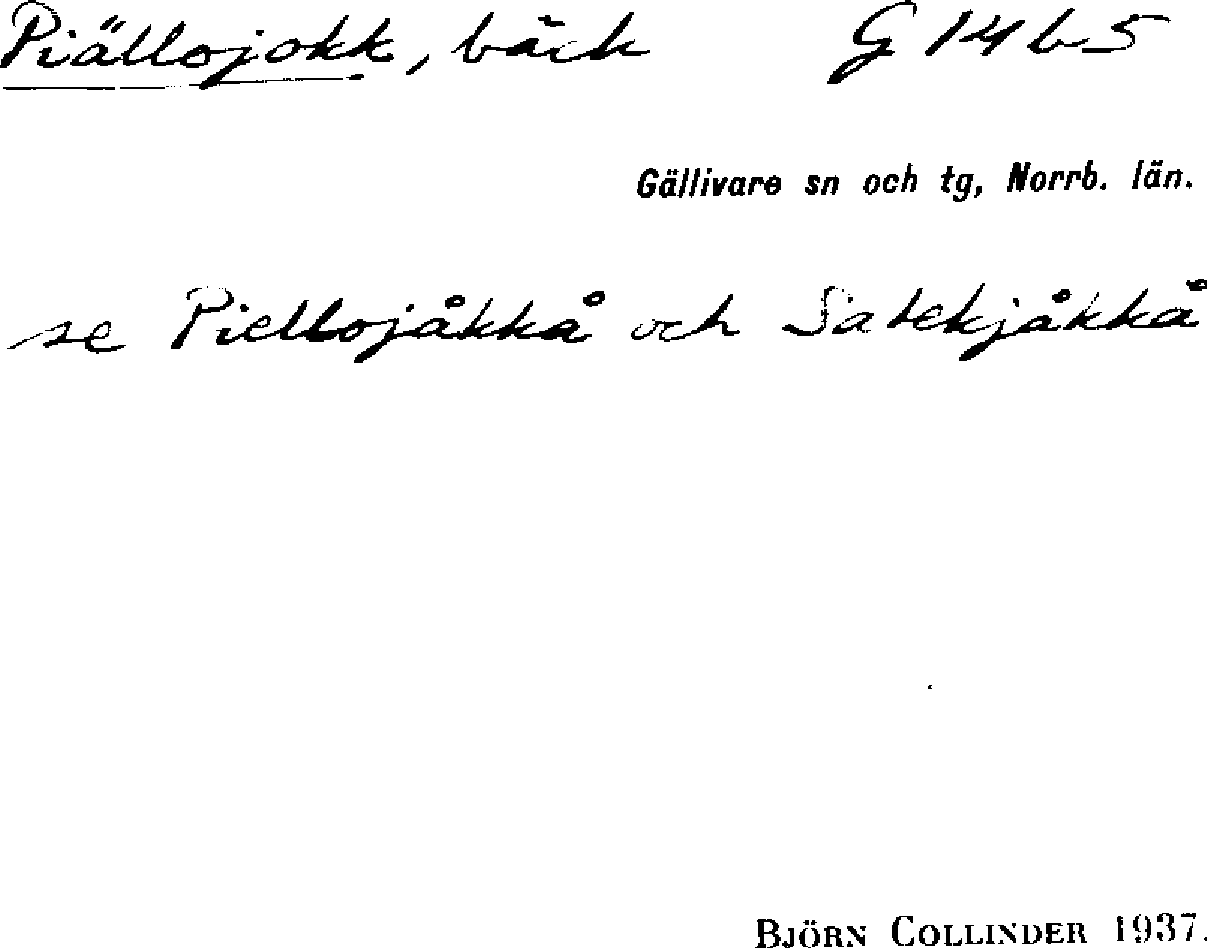 Piällojokk, bäck G 14 b 5
Gällivare sn och tg, Norrb. län.
se Piellojåkkå och Satekjåkkå
BJÖRN COLLINDER 1937.